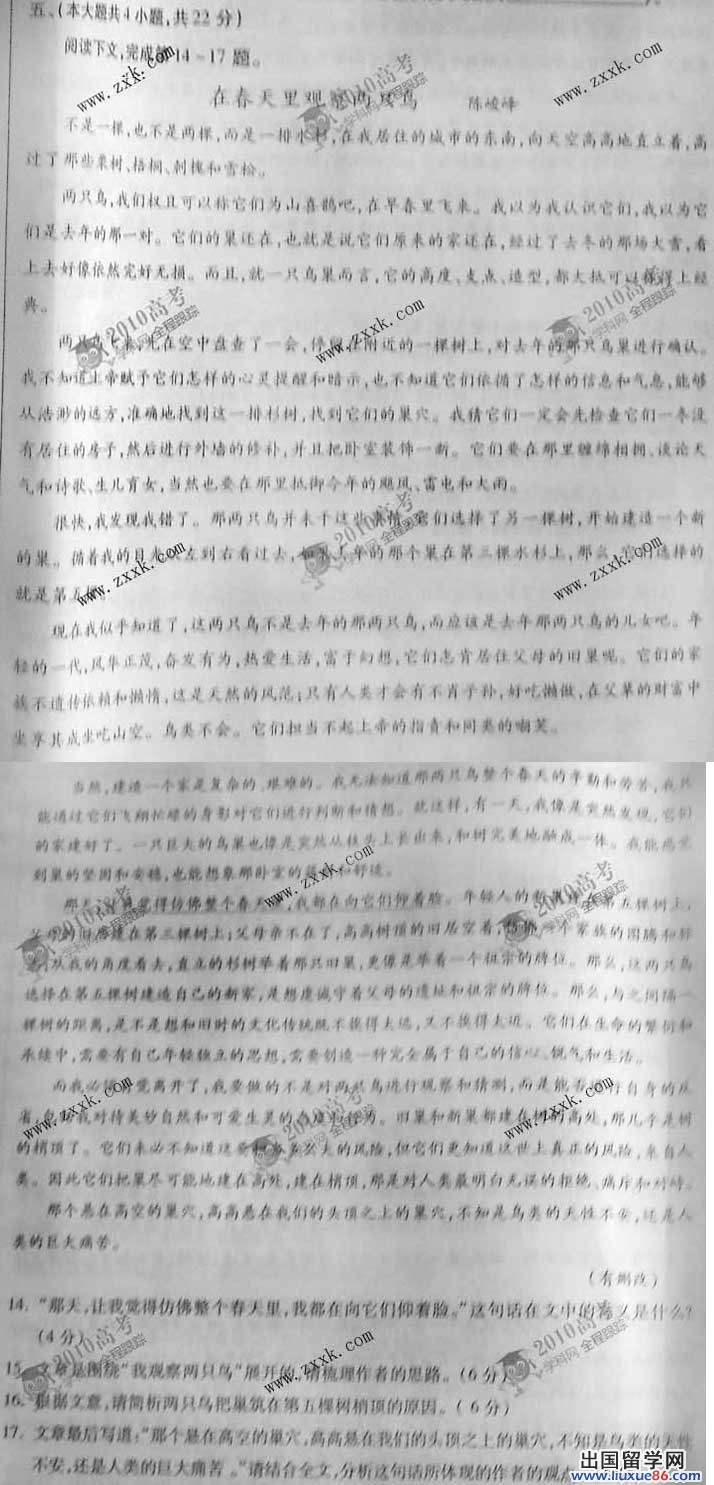 五、(本大题共4小题,共22分)
阅读下文,完成第14~17题。
在春天里观 两只鸟 陈峻峰
不是一棵,也不是两棵,而是一排水杉,在我居住的城市的东南,向天空高高地直立着,高
过了那些栗树、梧桐、刺槐和雪松。
两只鸟,我们权且可以称它们为山喜鹊吧,在早春里飞来。我以为我认识它们,我以为它
们是去年的那一对。它们的巢还在,也就是说它们原来的家还在,经过了去冬的那场大雪,看
上去好像依然完好无损。而且,就一只鸟巢而言,它的高度、支点、造型,都大抵可以称得上经
典。
两只鸟 来,先在空中盘查了一会,停 在附近的一棵树上,对去年的那只鸟巢进行确认。
我不知道上帝赋予它们怎样的心灵提醒和暗示,也不知道它们依循了怎样的信息和气息,能够
从浩渺的远方,准确地找到这一排杉树,找到它们的巢穴。我猜它们一定会先检查它们一冬没
有居住的房子,然后进行外墙的修补,并且把卧室装饰一新。它们要在那里缠绵相拥、谈论天
气和诗歌、生儿育女,当然也要在那里抵御今年的飓风、雷电和大雨。
很快,我发现我错了。那两只鸟并未干这些 情,它们选择了另一棵树,开始建造一个新
的巢。循着我的目光 左到右看过去,如果去年的那个巢在第三棵水杉上,那么 们选择的
就是第五棵。
现在我似乎知道了,这两只鸟不是去年的那两只鸟,而应该是去年那两只鸟的儿女吧。年
轻的一代,风华正茂,奋发有为,热爱生活,富于幻想,它们怎肯居住父母的旧巢呢。它们的家
族不遗传依赖和懒惰,这是天然的风范;只有人类才会有不肖子孙,好吃懒做,在父辈的财富中
坐享其成坐吃山空。鸟类不会。它们担当不起上帝的指责和同类的嘲笑。
当然,建造一个家是复杂的、艰难的。我无法知道那两只鸟整个春天的辛勤和劳苦,我只
能通过它们飞翔忙碌的身影对它们进行判断和猜想。就这样,有一天,我像是突然发现,它们
的家建好了。一只巨大的鸟巢也像是突然从枝头上长出来,和树完美地融成一体。我能感觉
到巢的坚固和安稳,也能想象那卧室的 和舒适。
那天,让我觉得仿佛整个春天里,我都在向它们仰着脸。年轻人的新 第五棵树上,
父母的旧居建在第三棵树上;父母亲不在了,高高树顶的旧居空着, 一个家族的图腾和标
从我的角度看去,直立的杉树举着那只旧巢,更像是举着一个祖宗的牌位。那么,这两只鸟
选择在第五棵树建造自己的新家,是想虔诚守着父母的遗址和祖宗的牌位。那么,与之间隔一
棵树的距离,是不是想和旧时的文化传统既不挨得太远,又不挨得太近。它们在生命的繁衍和
承续中,需要有自己年轻独立的思想,需要创造一种完全属于自己的信心、锐气和生活。
而我必须 觉离开了,我要做的不是对两只鸟进行观察和猜测,而是能否 行自身的反
省,包括我对待美妙自然和可爱生灵的 为。旧巢和新巢都建在树的高处,那几乎是树
的梢顶了。它们未必不知道这要 多么大的风险,但它们更知道这世上真正的风险,来自人
类。因此它们把巢尽可能地建在高处,建在梢顶,那是对人类最明白无误的拒绝、痛斥和对峙。
那个悬在高空的巢穴,高高悬在我们的头顶之上的巢穴,不知是鸟类的天性不安,还是人
类的巨大痛苦。
(有删改)
14. “那天,让我觉得仿佛整个春天里,我都在向它们仰着脸。”这句话在文中的含义是什么?
(4分)
15. 文章是围绕“我观察两只鸟”展开的,请梳理作者的思路。(6分)
16. 根据文章,请简析两只鸟把巢筑在第五棵树梢顶的原因。(6分)
17. 文章最后写道:“那个悬在高空的巢穴,高高悬在我们的头顶之上的巢穴,不知是鸟类的天性
不安,还是人类的巨大痛苦。”请结合全文,分析这句话所体现的作者的观点
出国留学网
www.liuxue86.com